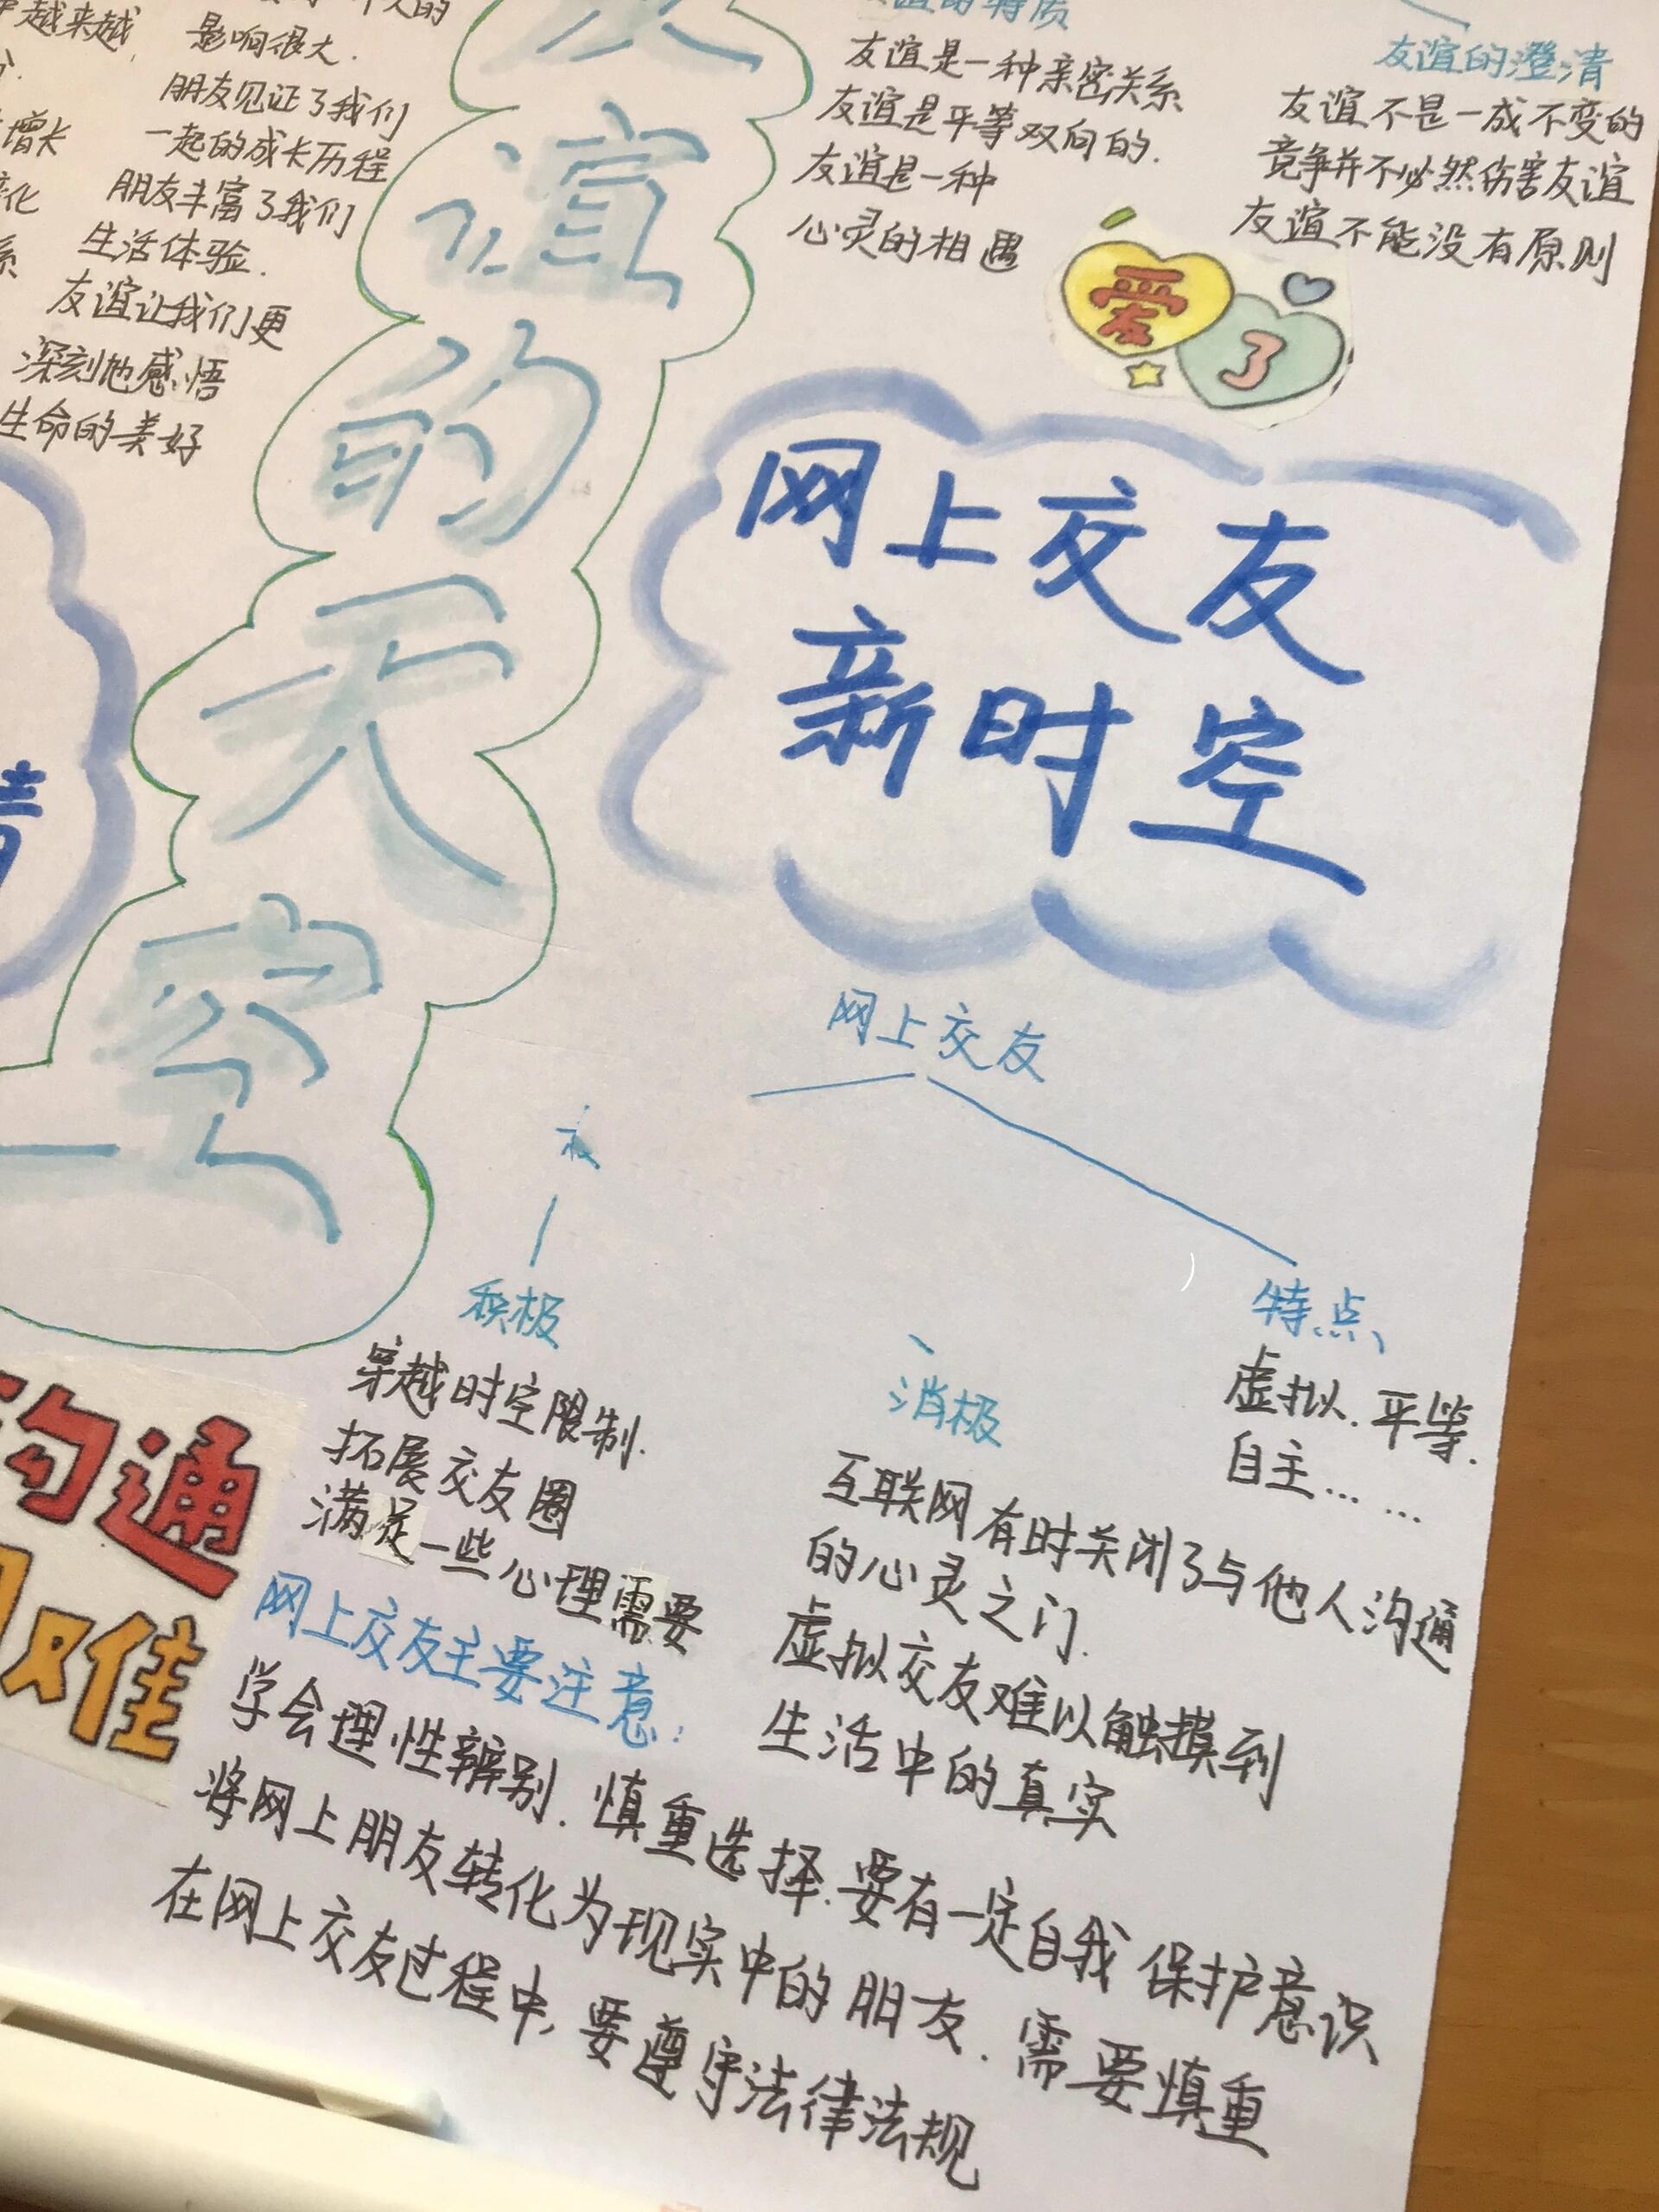 越来越
人的
影响很大.
增长
朋友见证了我们
一起的成长历程
化
朋友丰富了我们
生活体验.
系
友谊让我们更
深刻地感悟
生命的美好
友谊的天空
谊的特质
友谊是一种亲密关系
友谊是平等双向的.
友谊是一种
心灵的相遇
友谊的澄清
友谊不是一成不变的
竞争并不必然伤害友谊
友谊不能没有原则
爱了
网上交友
新时空
网上交友
积极
穿越时空限制.
拓展交友圈
满足一些心理需要
消极
互联网有时关闭了与他人沟通
的心灵之门.
虚拟交友难以触摸到
生活中的真实
特点、
虚拟.平等.
自主……
沟通
难
网上交友主要注意:
学会理性辨别.慎重选择.要有一定自我保护意识
将网上朋友转化为现实中的朋友.需要慎重
在网上交友过程中,要遵守法律法规